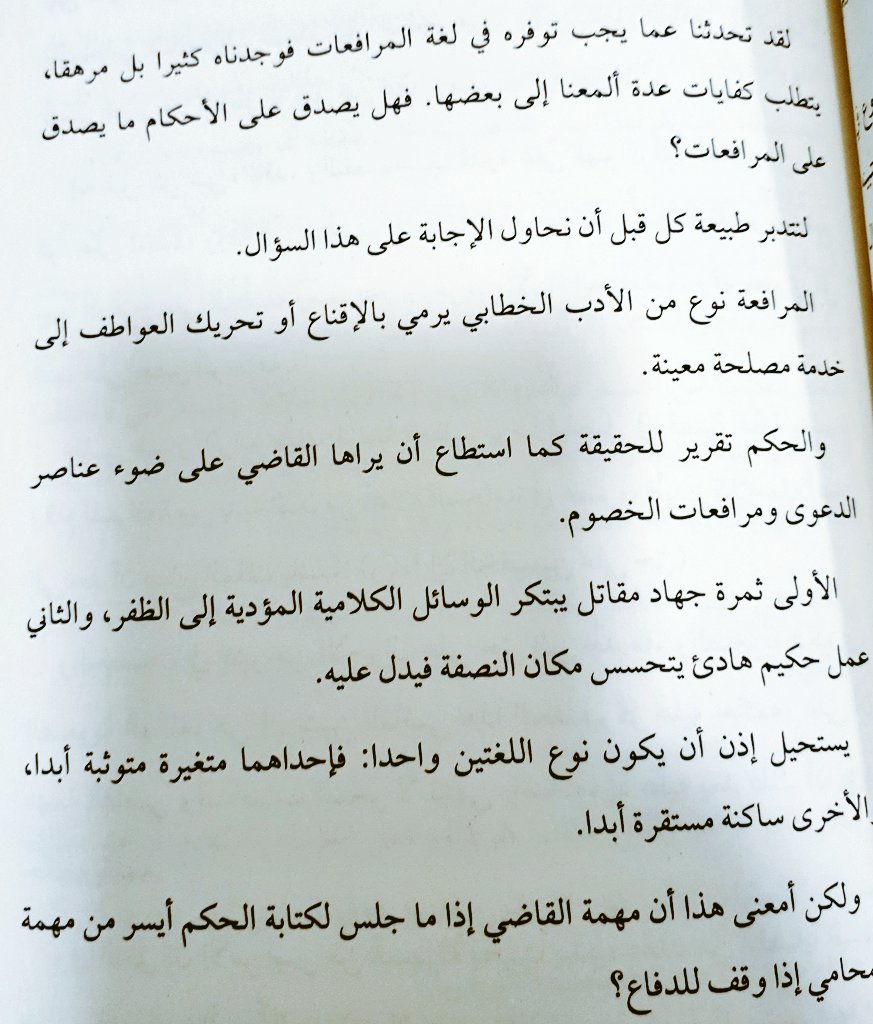 لقد تحدثنا عما يجب توفره في لغة المرافعات فوجدناه كثيرا بل مرهقا،
يتطلب كفايات عدة ألمعنا إلى بعضها. فهل يصدق على الأحكام ما يصدق
على المرافعات؟
لنتدبر طبيعة كل قبل أن نحاول الإجابة على هذا السؤال.
المرافعة نوع من الأدب الخطابي يرمي بالإقناع أو تحريك العواطف إلى
خدمة مصلحة معينة.
والحكم تقرير للحقيقة كما استطاع أن يراها القاضي على ضوء عناصر
الدعوى ومرافعات الخصوم.
الأولى ثمرة جهاد مقاتل يبتكر الوسائل الكلامية المؤدية إلى الظفر، والثاني
عمل حكيم هادئ يتحسس مكان النصفة فيدل عليه.
يستحيل إذن أن يكون نوع اللغتين واحدا: فإحداهما متغيرة متوثبة أبدا،
والأخرى ساكنة مستقرة أبدا.
ولكن أمعنى هذا أن مهمة القاضي إذا ما جلس لكتابة الحكم أيسر من مهمة
محامي إذا وقف للدفاع؟